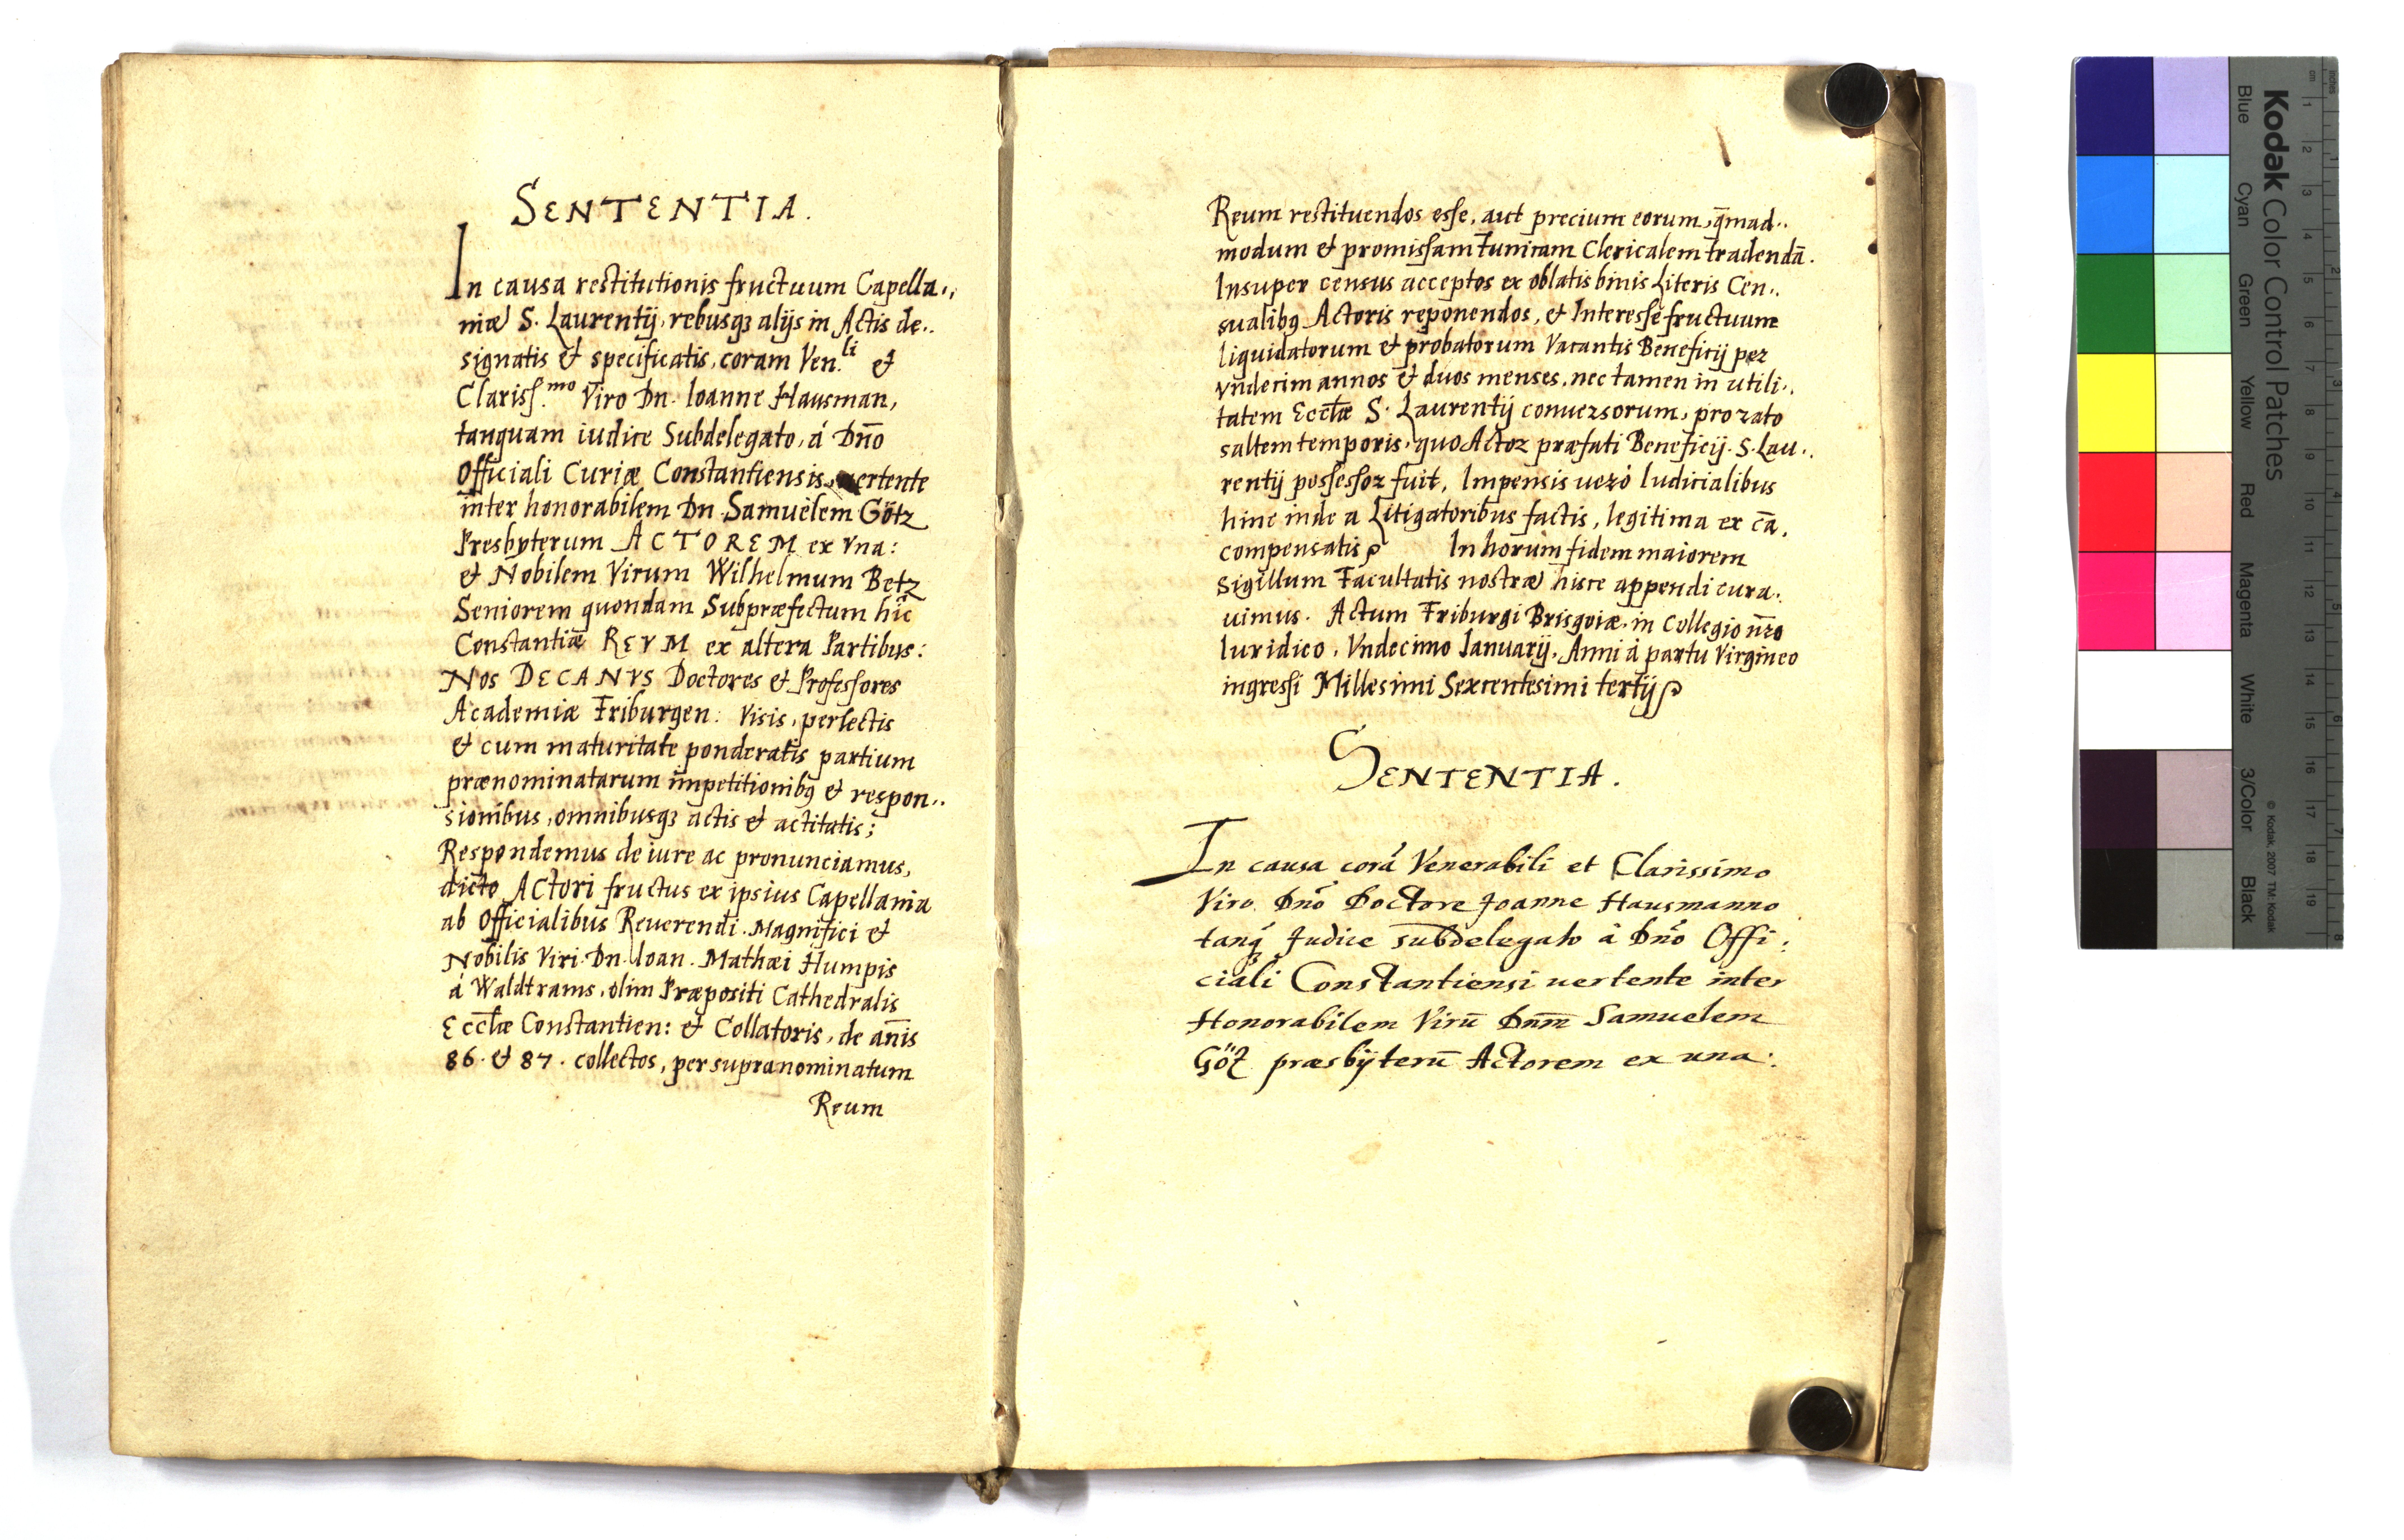 SENTENTIA.
In causa restitutionis fructuum Capella.,
niæ S. Laurentij, rebusqꝫ alijs in Actis de..
signatis & specificatis, coram Ven.li &
Clariss.mo Viro Dn. Ioanne Hausman,
tanquam iudice Subdelegato, á Dño
Officiali Curiæ Constantiensis, vertente
inter honorabilem Dn Samuèlem Götz
Presbyterum ACTOREM ex vna:
& Nobilem Virum Wilhelmum Betz
Seniorem quondam Subpræfectum hic
Constantiæ REVM ex altera Partibus:
Nos DECANVS Doctores & Professores
Academiæ Friburgen: Visis, perlectis
& cum maturitate ponderatis partium
prænominatarum impetitionibꝰ & respon..
sionibus, omnibusqꝫ actis & actitatis;
Respondemus de iure ac pronunciamus,
dicto Actori fructus ex ipsius Capellania
ab Officialibus Reuerendi. Magnifici &
Nobilis Viri Dn. Ioan. Mathæi Humpis
á Waldtrams, olim Præpositi Cathedralis
Eccłæ Constantien: & Collatoris, de añis
86. & 87. collectos, per supranominatum
Reum
Reum restituendos esse, aut precium eorum, q̃mad..
modum & promissam Tunicam Clericalem tradendã.
Insuper census acceptos ex oblatis binis Literis Cen..
sualibꝰ Actoris reponendos, & Interesse fructuum
liquidatorum & probatorum Vacantis Beneficij per
vndecim annos & duos menses, nec tamen in utili..
tatem Eccłæ S. Laurentij conuersorum, pro rato
saltem temporis, quo Actor præfati Beneficij S. Lau..
rentij possessor fuit, Impensis veró Iudicialibus
hinc inde a Litigatoribus factis, legitima ex cã,
compensatis In horum fidem maiorem
Sigillum Facultatis nostræ hisce appendi cura..
uimus. Actum Friburgi Brisgoiæ, in Collegio ñro
Iuridico, Vndecimo Ianuarij, Anni á partu Virgineo
ingressi Millesimi Sexcentesimi tertij
SENTENTIA.
In causa corã Venerabili et Clarissimo
Viro Dño Doctore Joanne Hausmanno
tanq̃ Judice subdelegato à Dño Offi:
ciali Constantiensi uertente inter
Honorabilem Virũ Dnm̃ Samuelem
Götz præsbÿterũ Actorem ex una:
Kodak Color Control Patches
Blue Cyan Green Yellow Red Magenta White 3/Color Black
© Kodak, 2007 TM: Kodak
cm 1 2 3 4 5 6 7 8 9 10 11 12 13 14 15 16 17 18 19
inches 1 2 3 4 5 6 7 8